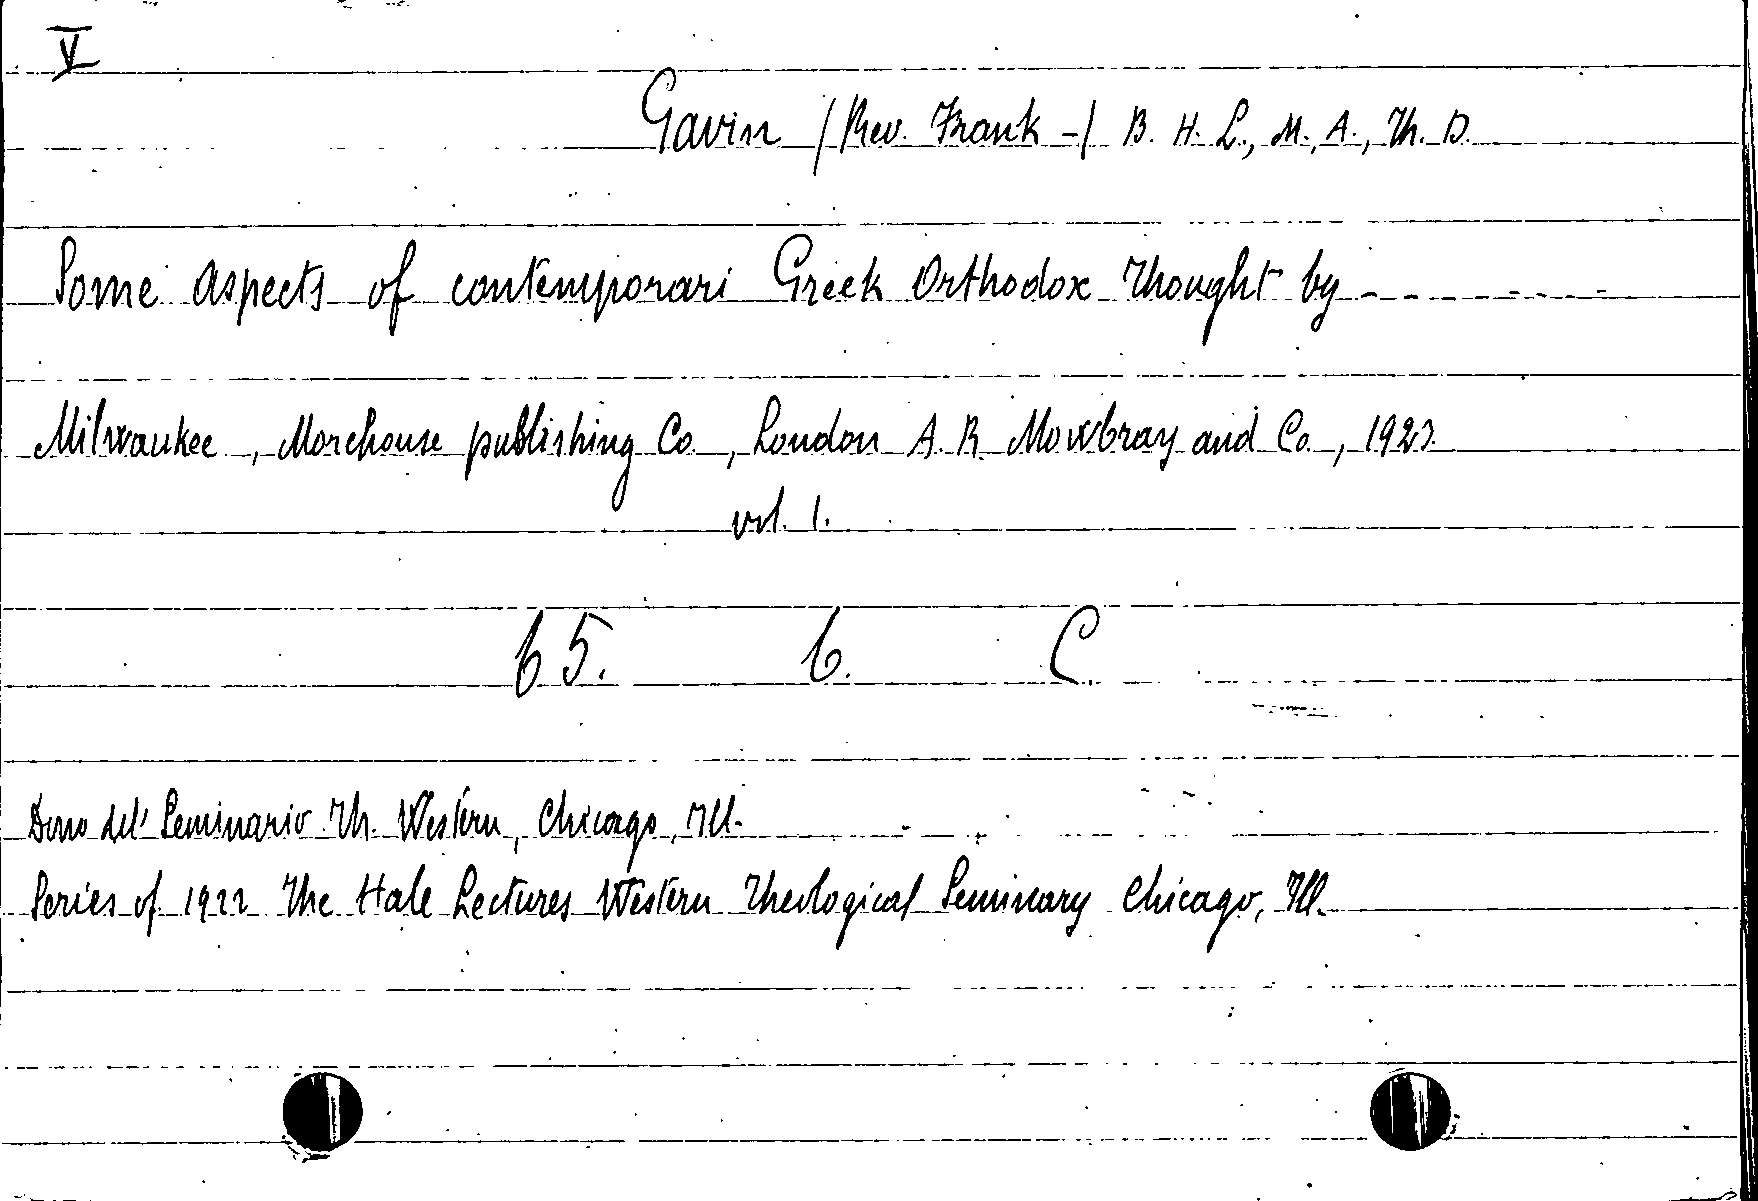 V
Gavin /Rev. Frank -/ B. H. L., M. A., Th. D.
Some aspects of contemporari Greek Orthodox Thought by - - - - - - - -
Milwaukee, Morehouse publishing Co., London A. R. Mowbray and Co., 1923.
vol. 1.
65. 6. C.
Dono del' Seminario Th. Western, Chicago, Ill.
Series of 1922 The Hale Lectures Western Theological Seminary Chicago, Ill.